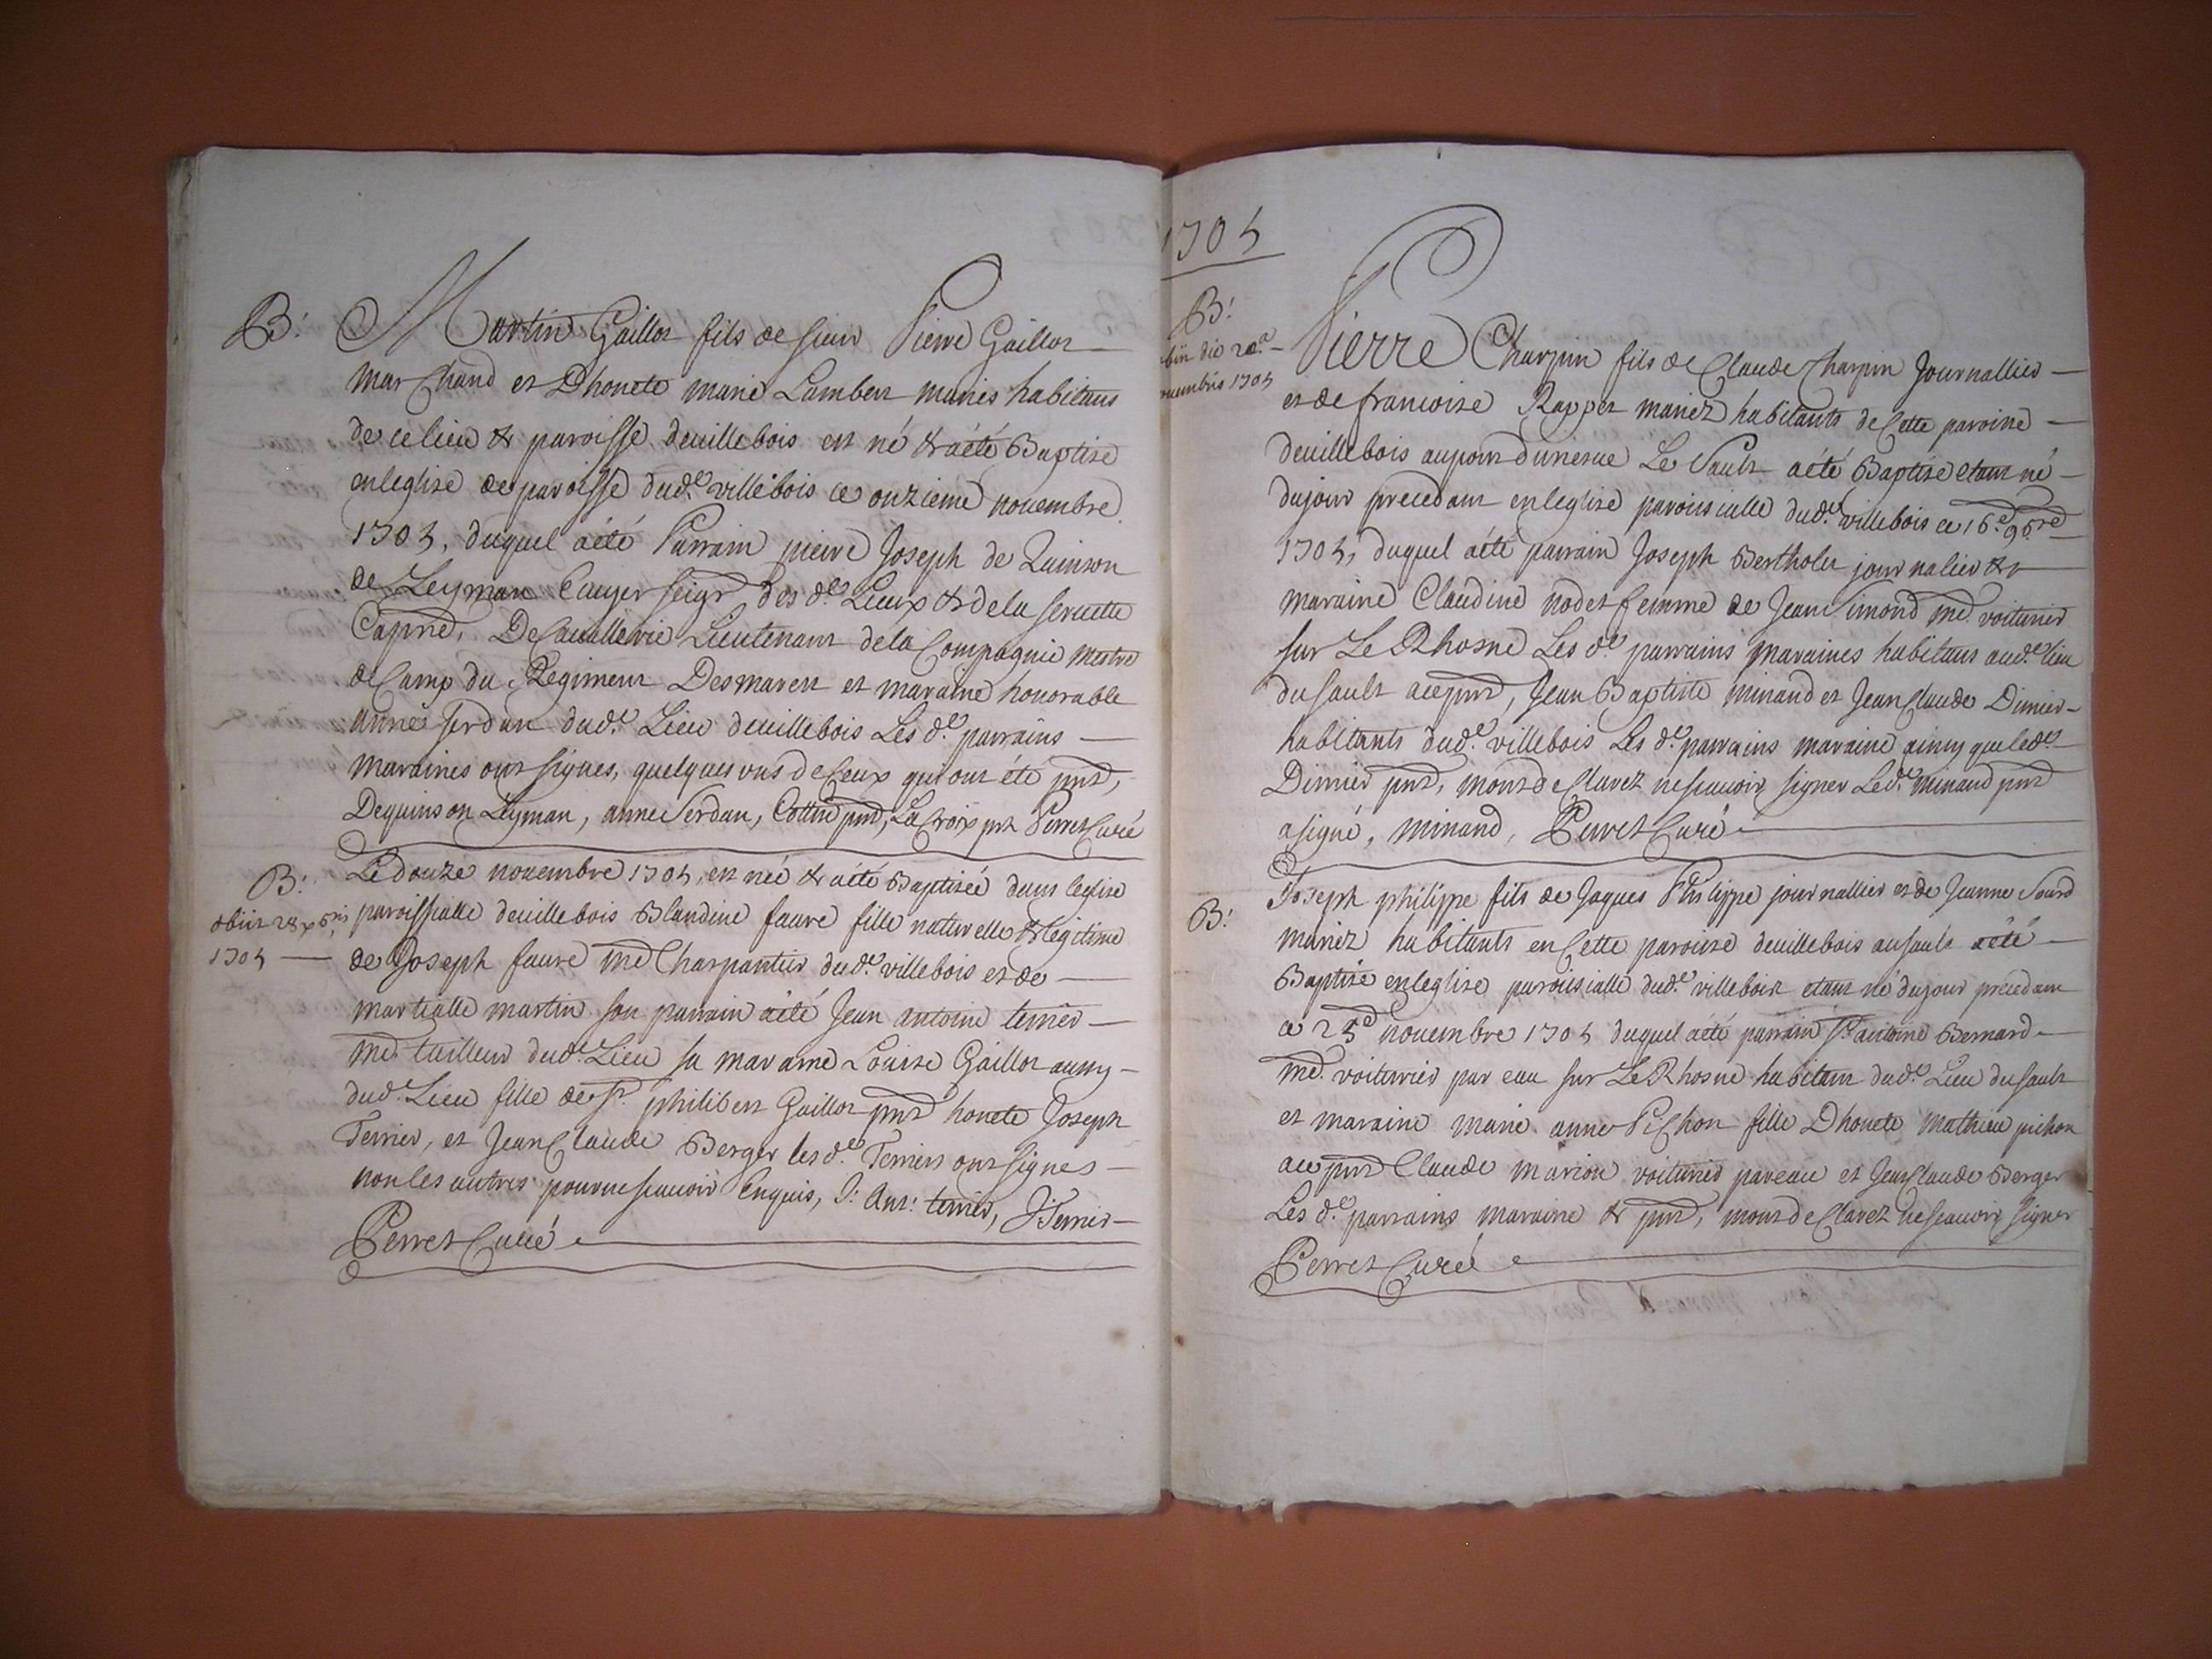 B: Martin Gaillot fils de sieur Pierre Gaillot
marchand et Dhonete marie Lambert mariés habitans
de ce lieu & paroisse deuillebois est né & aété Baptisé
enleglise de paroisse dud.t villebois ce onzieme nouembre
1705, duquel aété Parrain pierre Joseph de Quinson
de Leyman seigr des d.ts Lieux & dela seruette
Capne, De Cauallerie Lieutenant dela Compagnie mestre
de Camp du Regiment Desmarest et maraine honorable
anne serdan dud.t Lieu deuillebois Les d.ts parrains
maraines ont signes, quelques uns de Ceux qui ont été pnts,
Dequinson Leyman, anne Serdan, Cottin pnt, La Croix pnt Perret Curé
B: Le douze nouembre 1705, est née & aété Baptisée dans leglise
obiit 28 xbris paroissialle deuillebois Blandine faure fille naturelle & legitime
1705 de Joseph faure md Charpantier dud.t villebois et de
martialle martin son parrain aété Jean antoine terrier
md. tailleur dud.t Lieu sa maraine Louise Gaillot aussy
dud.t Lieu fille de sr. philibert Gaillot pnts honete Joseph
Terrier, et Jean Claude Berger les d.ts Terriers ont signes
non les autres pour ne scauoir Enquis, J: Ant: terrier, J Terrier
Perret Curé
1705
B: Pierre Charpin fils de Claude Charpin Journallier
die 20.a
nouembris 1705 et de francoise Rappet mariez habitants de Cette paroisse
deuillebois au Le Sault aété Baptisé etant né
dujour precedant enleglise paroissialle dud.t villebois ce 16.e 9bre
1705, duquel aété parrain Joseph Bertholet journalier &
maraine Claudine nodet femme de Jean Simond md. voiturier
sur Le Rhosne Les d.ts parrains maraines habitans aud.t lieu
du sault ace pnts, Jean Baptiste minand et Jean Claude Dimier
habitants dud.t villebois Les d.ts parrains maraine ainsy que led.t
Dimier pnt, mont declarez ne scauoir signer Led.t minand pnt
a signé, minand, Perret Curé
B: Joseph philippe fils de Jaques Philippe journallier et de Jeanne Sourd
mariez habitants en Cette paroisse deuillebois au sault aété
Baptisé enleglise paroissialle dud.t villebois etant né dujour precedant
ce 23e nouembre 1705 duquel aété parrain Sr antoine Bernard
md. voiturier par eau sur Le Rhosne habitant dud.t Lieu du sault
et maraine marie anne Pichon fille Dhonete Mathieu pichon
ace pnts Claude marion voiturier par eau et Jean Claude Berger
Les d.ts parrains maraine & pnts, mont declarez ne scauoir signer
Perret Curé